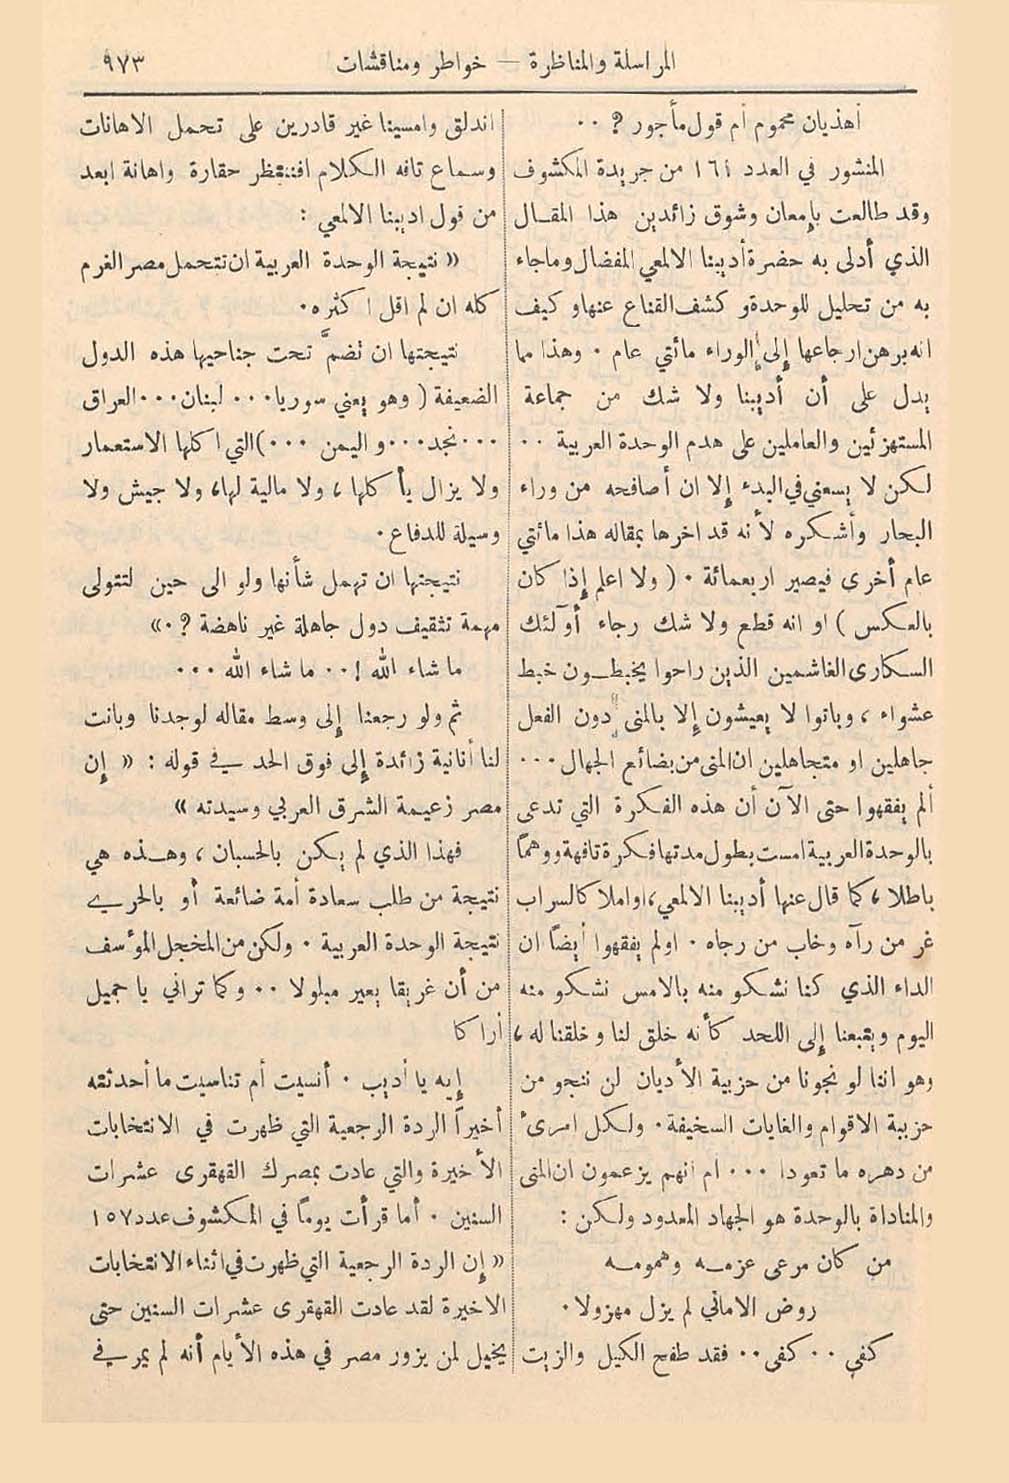 المراسلة والمناظرة — خواطر ومناقشات
٩٧٣
أهذيان محموم أم قول مأجور ? ٠٠
المنشور في العدد ١٦١ من جريدة المكشوف
وقد طالعت بإمعان وشوق زائدين هذا المقال
الذي أدلى به حضرة أديبنا الالمعي المفضال وماجاء
به من تحليل للوحدة و كشف القناع عنها و كيف
انه برهن ارجاعها إلى الوراء مائتي عام ٠ وهذا مما
يدل على أن أديبنا ولا شك من جماعة
المستهزئين والعاملين على هدم الوحدة العربية ٠٠
لكن لا يسعني في البدء إلا ان أصافحه من وراء
البحار وأشكره لأنه قد اخرها بمقاله هذا مائتي
عام أخرى فيصير اربعمائة ٠ ( ولا اعلم إذا كان
بالعكس ) او انه قطع ولا شك رجاء أولئك
السكارى الغاشمين الذين راحوا يخبطون خبط
عشواء ، وباتوا لا يعيشون إلا بالمنى دون الفعل
جاهلين او متجاهلين ان المنى من بضائع الجهال ٠٠٠
ألم يفقهوا حتى الآن أن هذه الفكرة التي تدعى
بالوحدة العربية امست بطول مدتها فكرة تافهة ووهماً
باطلا ، كما قال عنها أديبنا الالمعي ، او املا كالسراب
غر من رآه وخاب من رجاه ٠ اولم يفقهوا أيضاً ان
الداء الذي كنا نشكو منه بالامس نشكو منه
اليوم ويتبعنا إلى اللحد كأنه خلق لنا و خلقنا له ،
وهو اننا لو نجونا من حزبية الأديان لن ننجو من
حزبية الاقوام والغايات السخيفة ٠ ولكل امرئ
من دهره ما تعودا ٠٠٠ ام انهم يزعمون ان المنى
والمناداة بالوحدة هو الجهاد المعدود ولكن :
من كان مرعى عزمه وهمومه
روض الاماني لم يزل مهزولا ٠
كفى ٠٠ كفى ٠٠ فقد طفح الكيل والزيت
اندلق وامسينا غير قادرين على تحمل الاهانات
وسماع تافه الكلام افننتظر حقارة واهانة ابعد
من قول اديبنا الالمعي :
« نتيجة الوحدة العربية ان تتحمل مصر الغرم
كله ان لم اقل ا كثره ٠
نتيجتها ان تضمَّ تحت جناحيها هذه الدول
الضعيفة ( وهو يعني سوريا ٠٠٠ لبنان ٠٠٠ العراق
٠٠٠ نجد ٠٠٠ و اليمن ٠٠٠ ) التي ا كلها الاستعمار
ولا يزال يأ كلها ، ولا مالية لها ، ولا جيش ولا
وسيلة للدفاع ٠
نتيجتها ان تهمل شأنها ولو الى حين لتتولى
مهمة تثقيف دول جاهلة غير ناهضة ? ٠ »
ما شاء الله ! ٠٠ ما شاء الله ٠٠٠
ثم ولو رجعنا إلى وسط مقاله لوجدنا وبانت
لنا أنانية زائدة إلى فوق الحد في قوله : « إن
مصر زعيمة الشرق العربي وسيدته »
فهذا الذي لم يكن بالحسبان ، وهذه هي
نتيجة من طلب سعادة أمة ضائعة أو بالحري
نتيجة الوحدة العربية ٠ ولكن من المخجل المؤسف
من أن غريقا يعير مبلولا ٠٠ و كما تراني يا جميل
أرا كا
إيه يا أديب ٠ أنسيت أم تناسيت ما أحدثته
أخيراً الردة الرجعية التي ظهرت في الانتخابات
الأخيرة والتي عادت بمصرك القهقرى عشرات
السنين ٠ أما قرأت يوماً في المكشوف عدد ١٥٧
« إن الردة الرجعية التي ظهرت في اثناء الانتخابات
الاخيرة لقد عادت القهقرى عشرات السنين حتى
يخيل لمن يزور مصر في هذه الأيام أنه لم يمر في